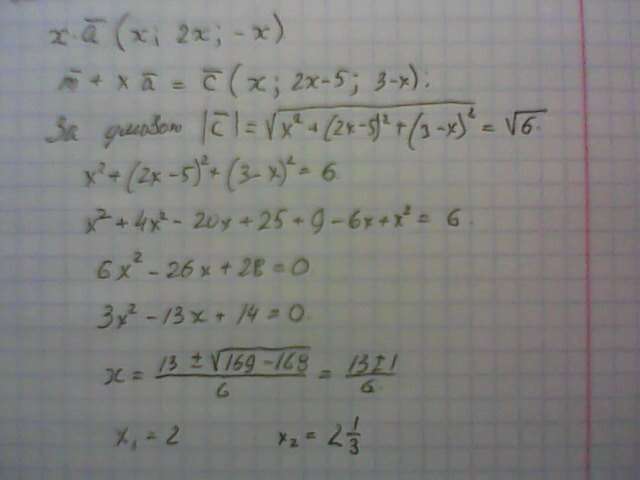 x·a̅ (x; 2x; -x)
m̅ + x a̅ = c̅ (x; 2x-5; 3-x).
За умовою |c̅| = √(x²+(2x-5)²+(3-x)²) = √6.
x²+(2x-5)²+(3-x)² = 6
x²+4x²-20x+25+9-6x+x² = 6.
6x²-26x+28=0
3x²-13x+14=0.
x = (13±√(169-168))/6 = (13±1)/6.
x₁ = 2 x₂ = 2 1/3